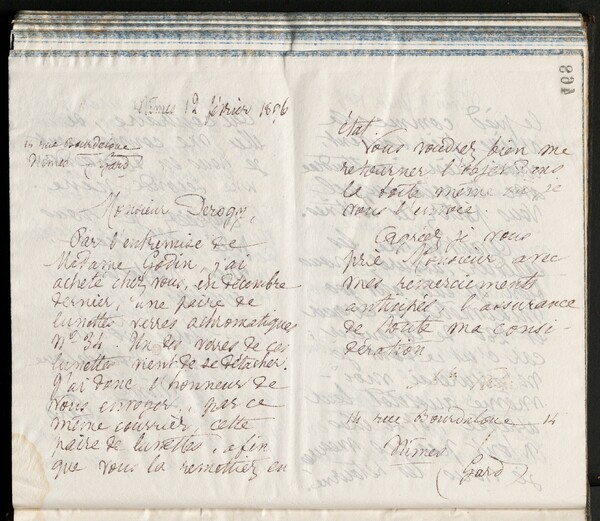 Nîmes 12 février 1896
14 rue Bourdaloue
Nîmes (Gard)
Monsieur Derogy,
Par l'entremise de
Madame Godin, j'ai
acheté chez vous, en décembre
dernier, une paire de
lunettes verres achromatiques
N° 34. Un des verres de ces
lunettes vient de se détacher.
J'ai donc l'honneur de
vous envoyer, par ce
même courrier, cette
paire de lunettes, afin
que vous la remettiez en
894
état.
Vous voudrez bien me
retourner l'objet dans
la boîte même où je
vous l'envoie.
Agréez je vous
prie Monsieur avec
mes remerciements
anticipés l'assurance
de toute ma consi-
dération
14 rue Bourdaloue 14
Nîmes
(Gard)